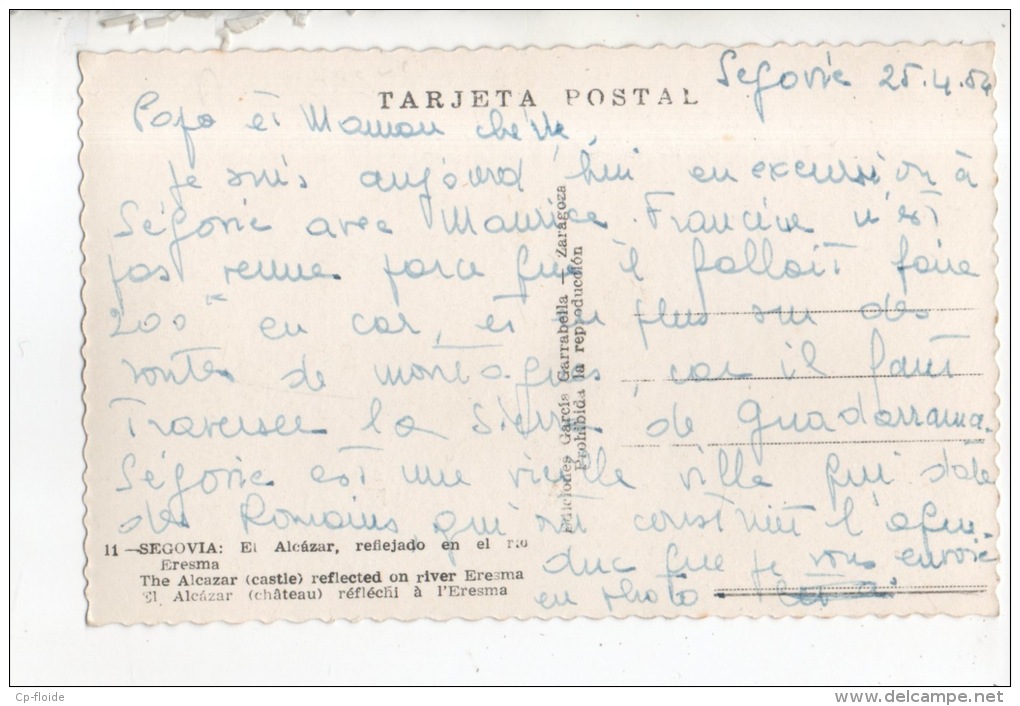 Ségovie 25.4.54
TARJETA POSTAL
Papa et Maman chérie,
Je suis aujourd'hui en excursion à
Ségovie avec Maurice. Francine n'est
pas venue parce que il fallait faire
200 en car, et en plus sur des
routes de montagnes, car il faut
traverser la Sierra de Guadarrama.
Ségovie est une vieille ville qui date
des Romains qui ont construit l'aque-
duc que je vous envoie
en photo
Ediciones García Garrabella - Zaragoza
Prohibida la reproducción
11 —SEGOVIA: El Alcázar, reflejado en el rio
Eresma
The Alcazar (castle) reflected on river Eresma
El Alcázar (château) réfléchi à l'Eresma
Cp-floide
www.delcampe.net